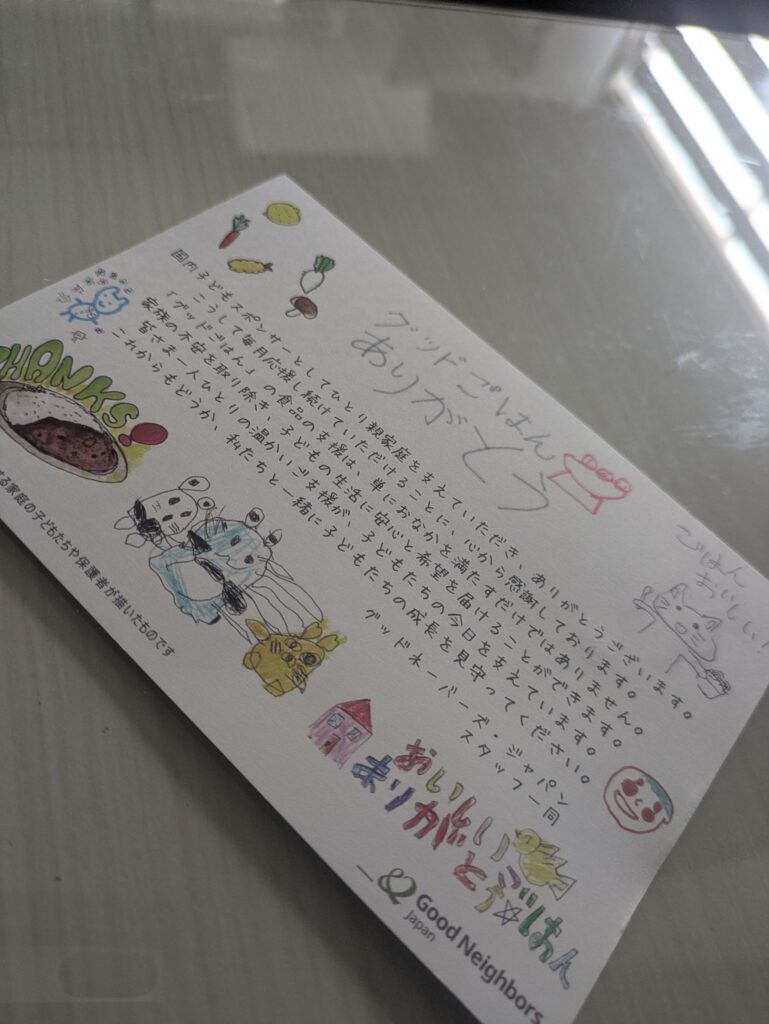 グッドごはん
ありがとう
ごはん
おいしい!
国内子どもスポンサーとしてひとり親家庭を支えていただき、ありがとうございます。
こうして毎月応援し続けていただけることに、心から感謝しております。
「グッドごはん」の食品の支援は、単におなかを満たすだけではありません。
家族の不安を取り除き、子どもの生活に安心と希望を届けることができます。
皆さま一人ひとりの温かいご支援が、子どもたちの今日を支えています。
これからもどうか、私たちと一緒に子どもたちの成長を見守ってください。
グッドネーバーズ・ジャパン
スタッフ一同
THANKS!
おいしい
ありがとう☆
ごはん
する家庭の子どもたちや保護者が描いたものです
Good Neighbors
Japan